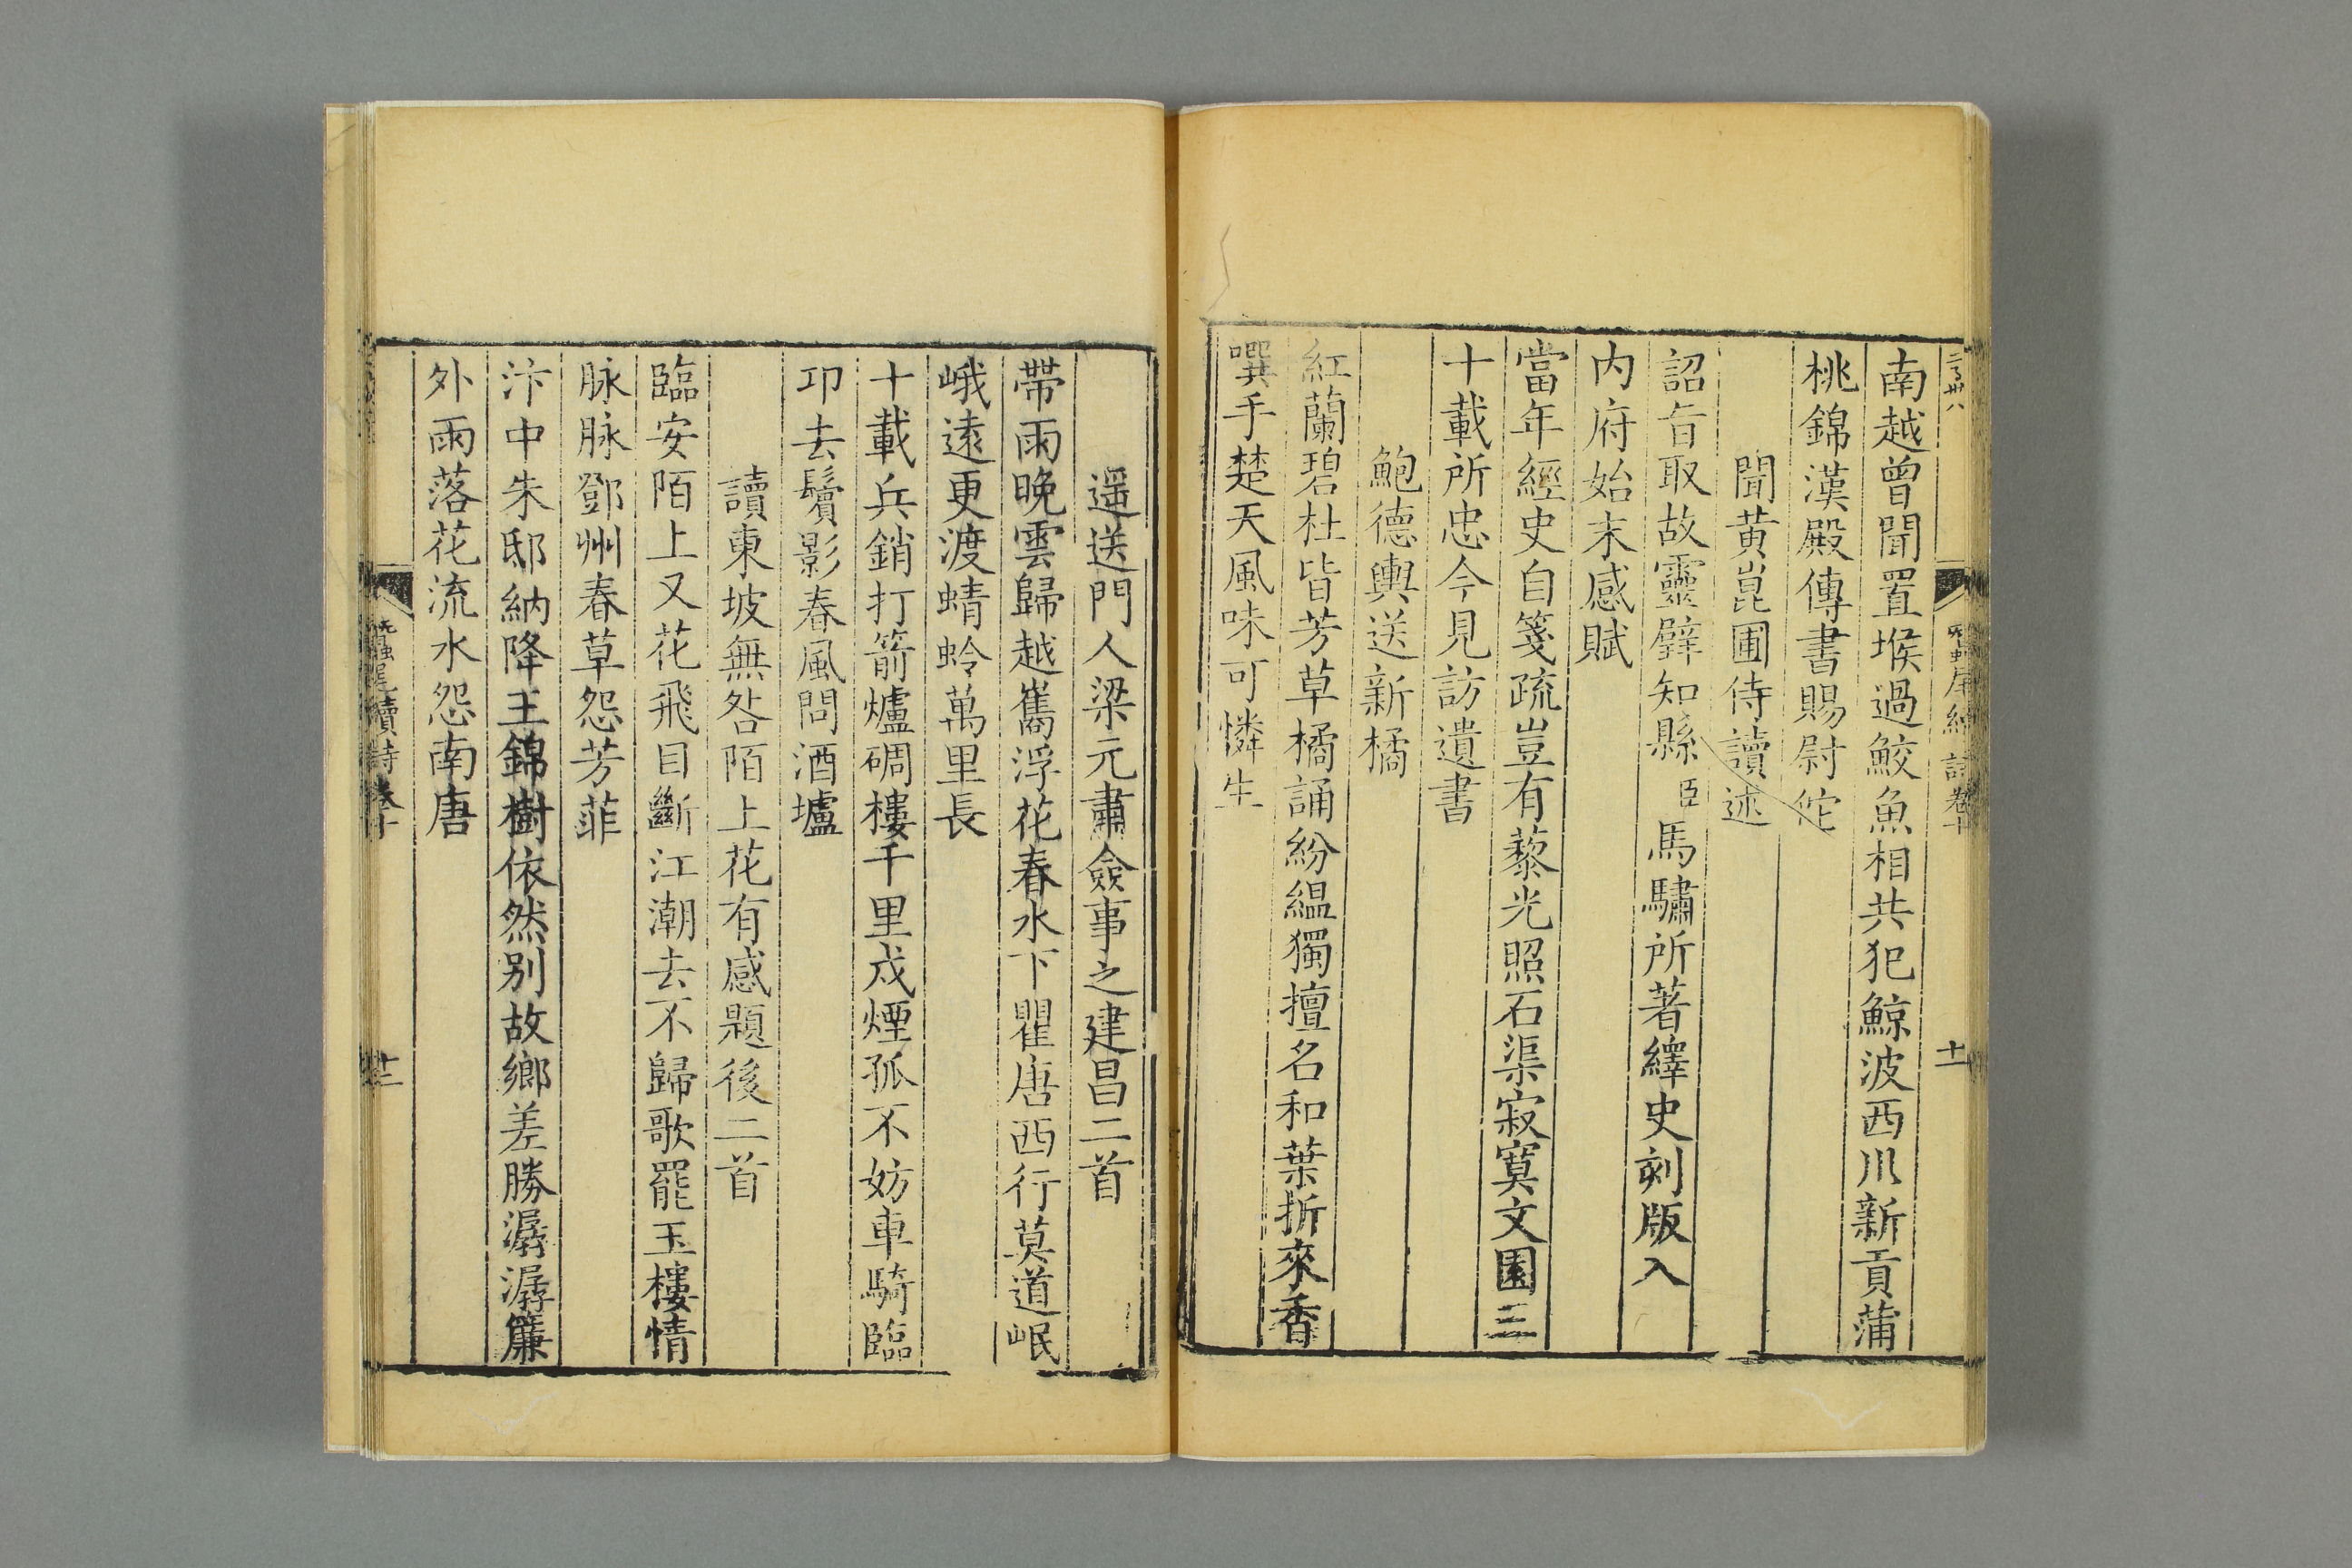 南越曾聞置堠過鮫魚相共犯鯨波西川新貢蒲
桃錦漢殿傳書賜尉佗
聞黄崑圃侍讀述
詔旨取故靈壁知縣臣馬驌所著繹史刻版入
内府始末感賦
當年經史自箋疏豈有藜光照石渠寂寞文園三
十載所忠今見訪遺書
鮑德輿送新橘
紅蘭碧杜皆芳草橘誦紛緼獨擅名和葉折來香
噀手楚天風味可憐生
十一
遥送門人梁元肅僉事之建昌二首
帶雨晚雲歸越嶲浮花春水下瞿唐西行莫道岷
峨遠更渡蜻蛉萬里長
十載兵銷打箭爐碉樓千里戍煙孤不妨車騎臨
邛去鬢影春風問酒壚
讀東坡無咎陌上花有感題後二首
臨安陌上又花飛目斷江潮去不歸歌罷玉樓情
脉脉鄧州春草怨芳菲
汴中朱邸納降王錦樹依然别故鄉差勝潺潺簾
外雨落花流水怨南唐
蠶尾續詩卷十
十二